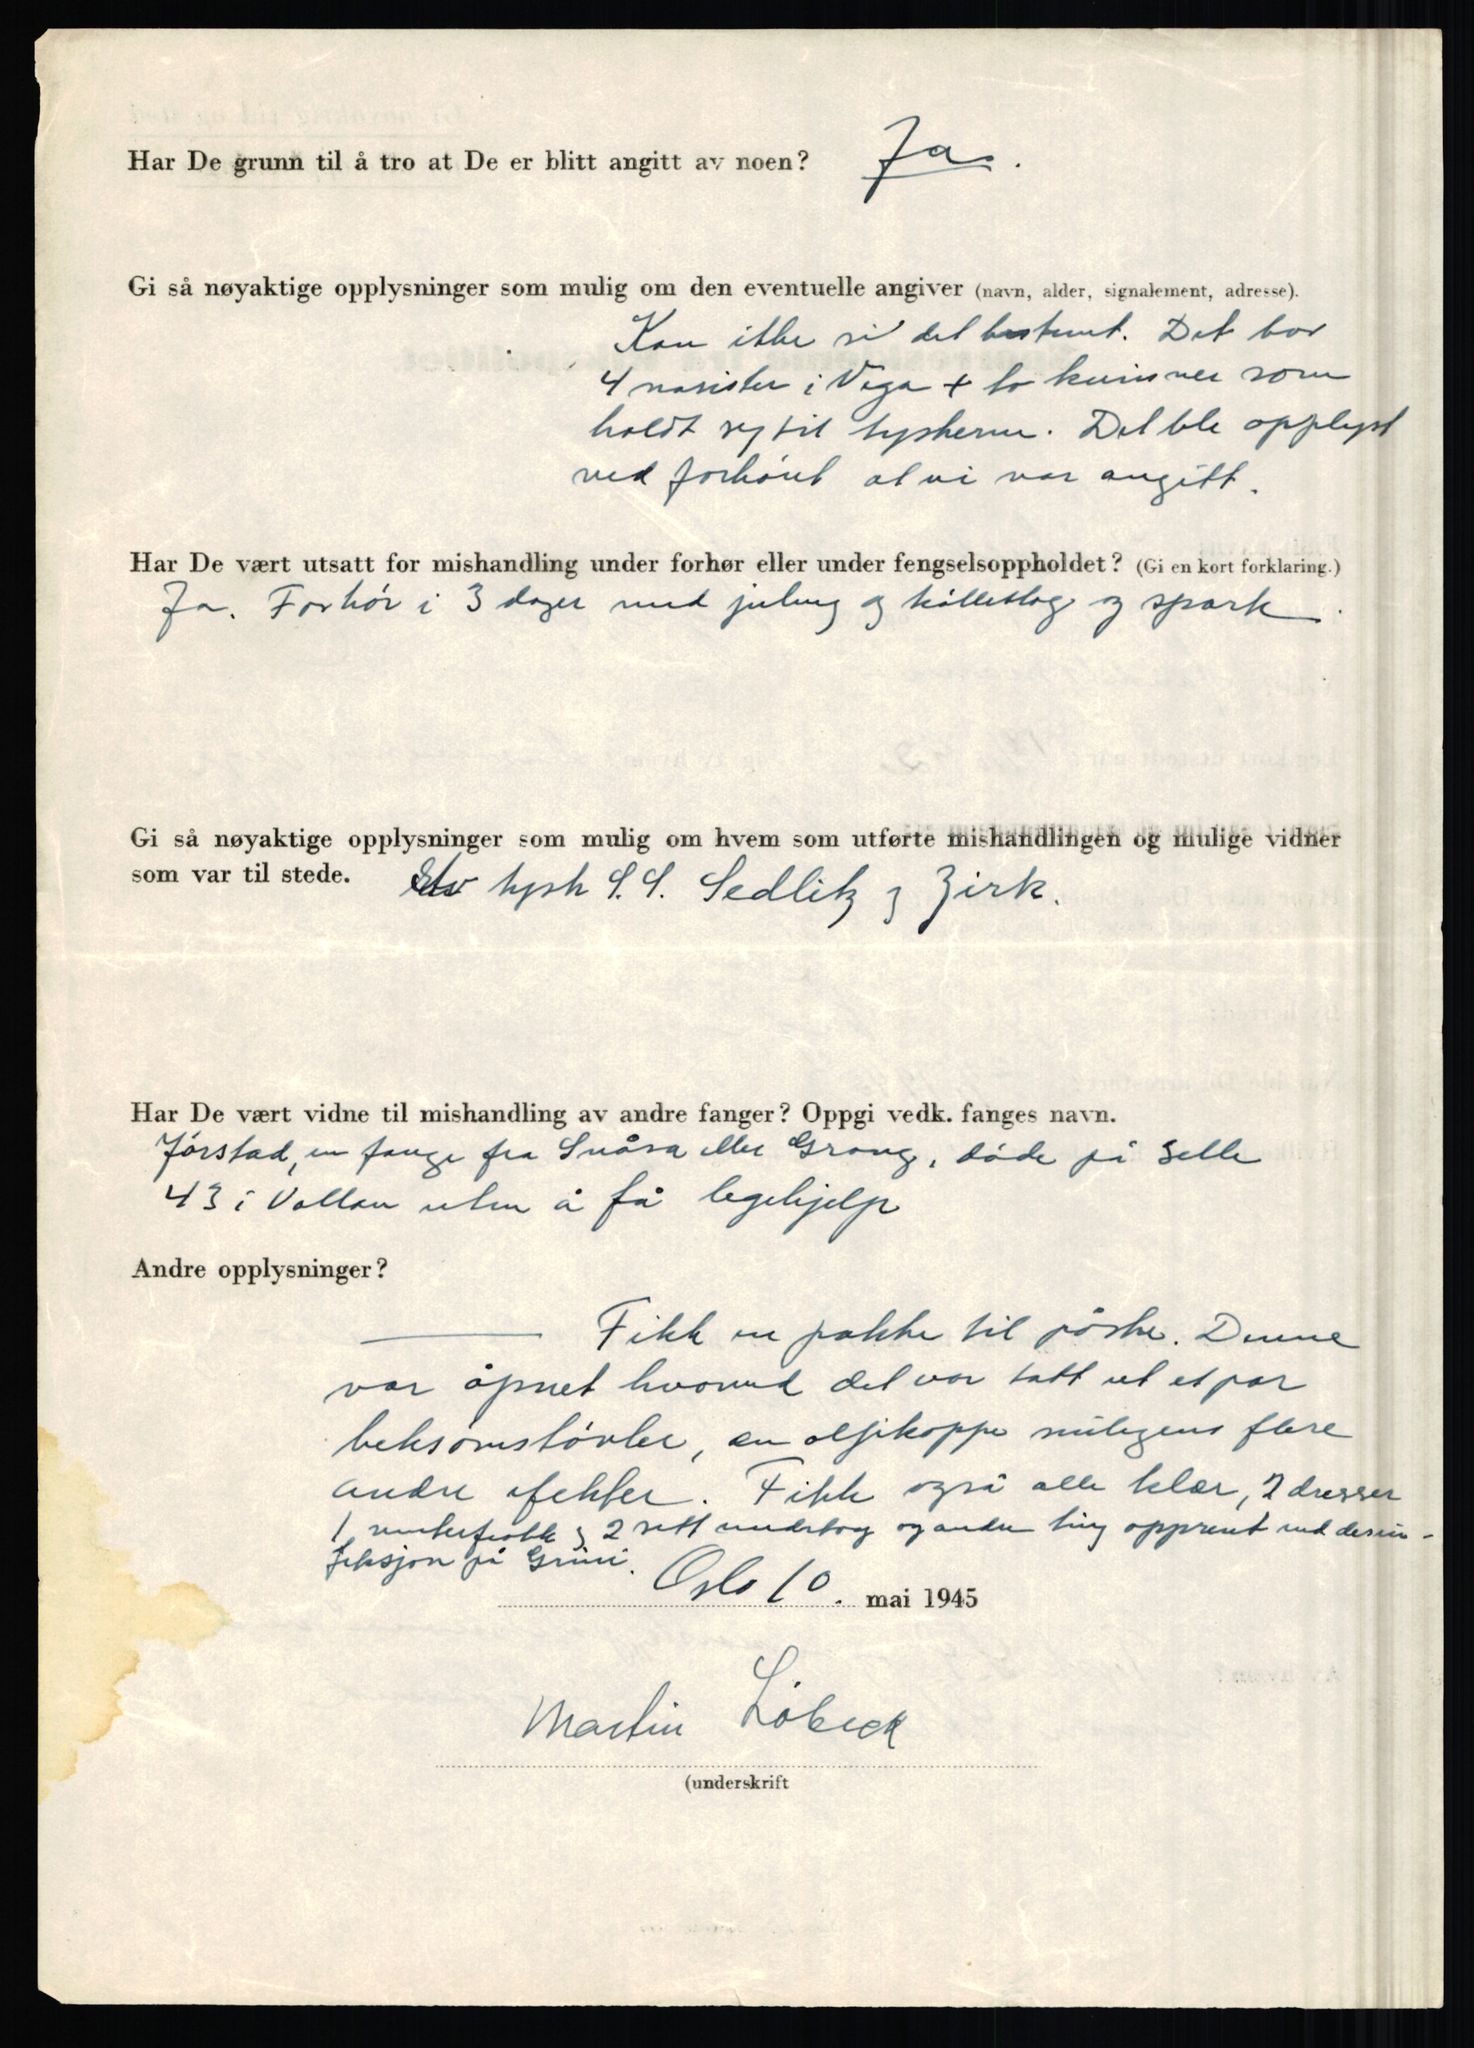 Har De grunn til å tro at De er blitt angitt av noen? Ja.
Gi så nøyaktige opplysninger som mulig om den eventuelle angiver (navn, alder, signalement, adresse).
Kan ikke si det bestemt. Det bor
4 nasister i Vega + to kvinner som
holdt seg til tyskerne. Det ble opplyst
ved forhöret at vi var angitt.
Har De vært utsatt for mishandling under forhør eller under fengselsoppholdet? (Gi en kort forklaring.)
Ja. Forhör i 3 dager med juling og kölleslag og spark.
Gi så nøyaktige opplysninger som mulig om hvem som utførte mishandlingen og mulige vidner
som var til stede. tysk S.S. Sedlitz og Zirk.
Har De vært vidne til mishandling av andre fanger? Oppgi vedk. fanges navn.
Jörstad, en fange fra Snåsa eller Grong, döde på Selle
43 i Vollan uten å få legehjelp
Andre opplysninger?
Fikk en pakke til påske. Denne
var åpnet hvorved det var tatt ut et par
beksömstövler, en oljekappe muligens flere
andre efekter. Fikk også alle klær, 2 dresser
1 vinterfrakk og 2 sett undertøy og andre ting opprevet ved desin-
feksjon på Grini.
Oslo 10. mai 1945
Martin Löbeck
(underskrift